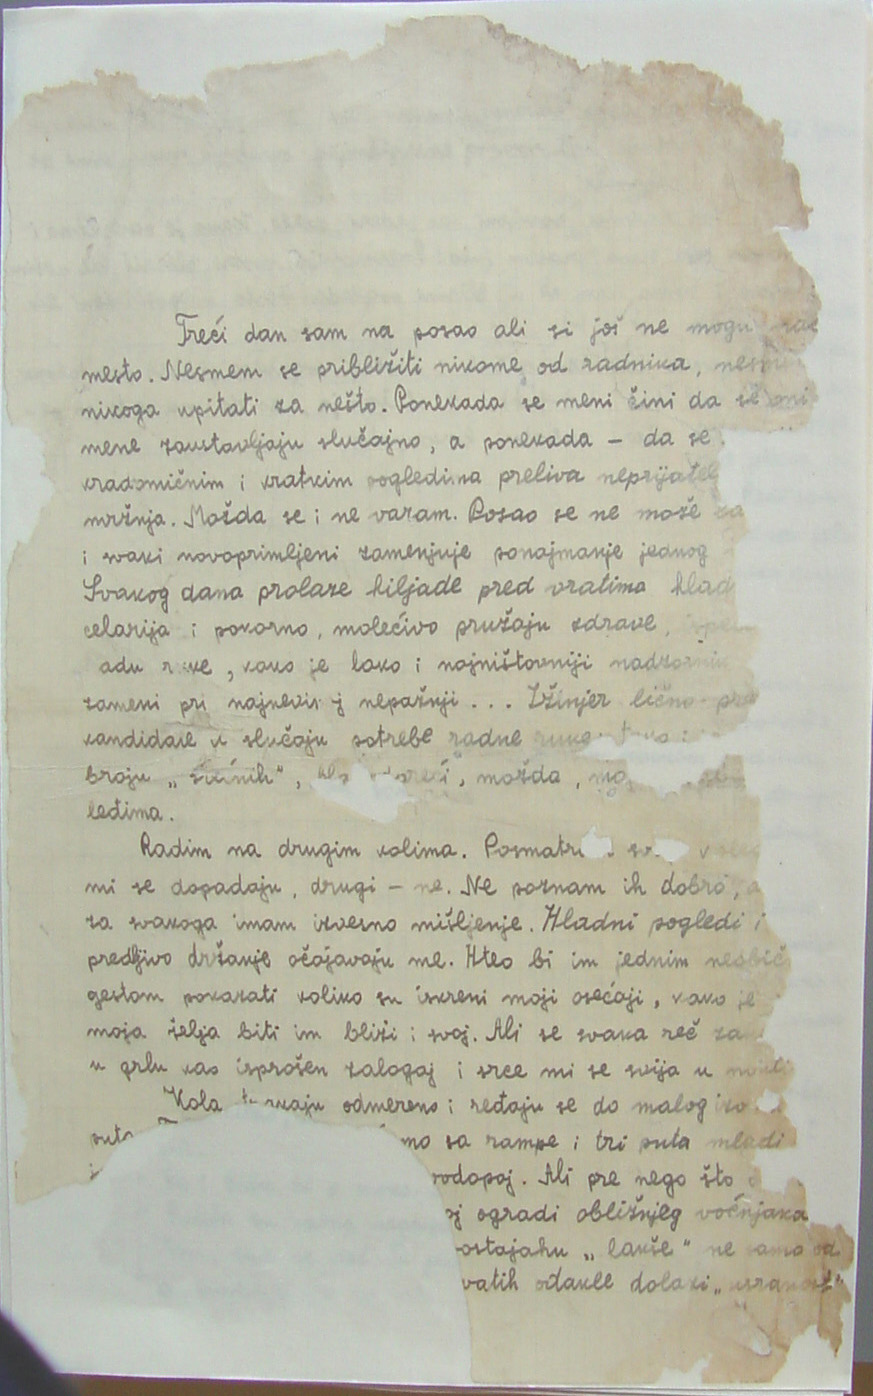 Treći dan sam na posao ali si još ne mogu
mesto. Nesmem se približiti nikome od radnika,
nikoga upitati za nešto. Ponekada se meni čini da se oni
mene zaustavljaju slučajno, a ponekada – da se
kradomičnim i kratkim pogledima preliva neprijatel
mržnja. Možda se i ne varam. Posao se ne može
i svaki novoprimljeni zamenjuje ponajmanje jednog
Svakog dana prolaze hiljade pred vratima hlad
celarija i pokorno, molećivo pružaju zdrave,
adu kako je lako i najništovniji nadzornik
zameni pri nepažnji ... Ižinjer lično
kandidate u slučaju potrebe radne
broju „srećnih", možda,
leđima.
Radim na drugim kolima.
mi se dopadaju, drugi – ne. Ne poznam ih dobro,
za svakoga imam izvesno mišljenje. Hladni pogledi i
predljivo držanje očajavaju me. Hteo bi im jednim neobič
gestom pokazati koliko su iskreni moji osećaji, kako je
moja želja biti im bliži i svoj. Ali se svaka reč
u grlu kao isprošen zalogaj i srce mi se svija u
Kola odmereno i ređaju se do malog
sa rampe i tri puta mladi
vodopoj. Ali pre nego što
oj ogradi obližnjeg voćnjaka
ostajahu „lakše" ne samo od
vatih odakle dolazi